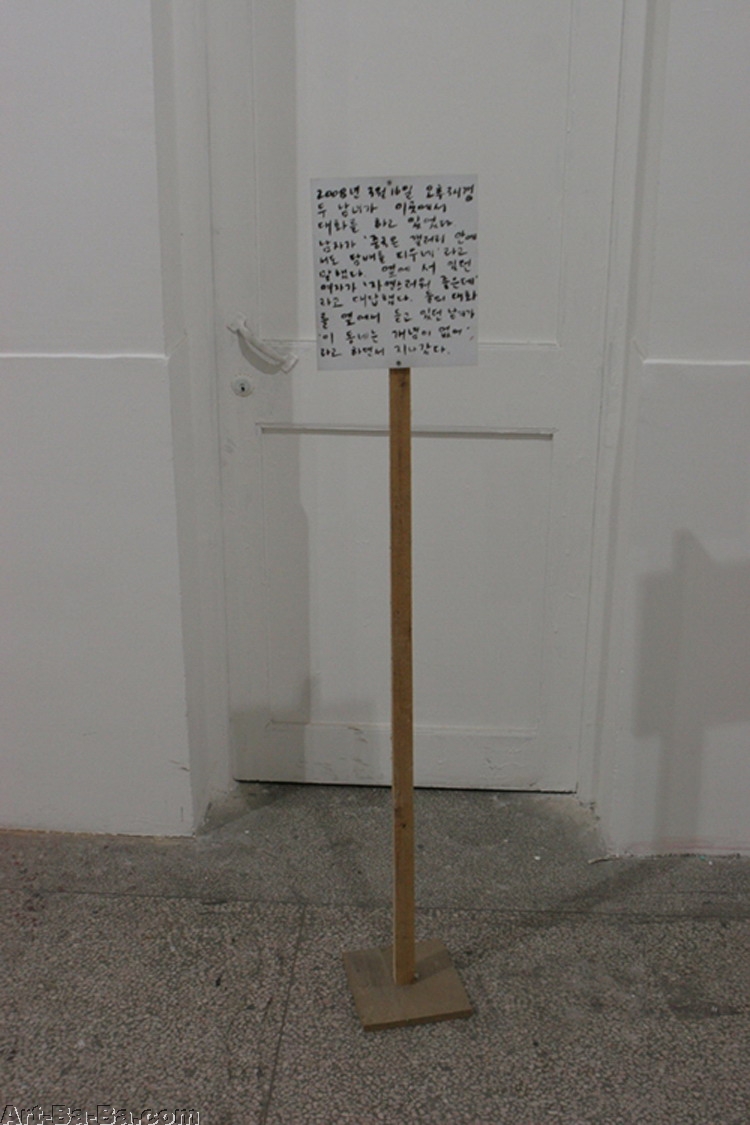 2008년 3월 16일 오후 3시경
두 남녀가 이곳에서
대화를 하고 있었다
남자가 '중국은 갤러리 안에
서도 담배를 피우네' 라고
말했다. 옆에 서 있던
여자가 '자연스러워 좋은데'
라고 대답했다. 둘의 대화
를 옆에서 듣고 있던 남녀가
'이 동네는 개념이 없어',
라고 하면서 지나갔다.
Art-Ba-Ba.com